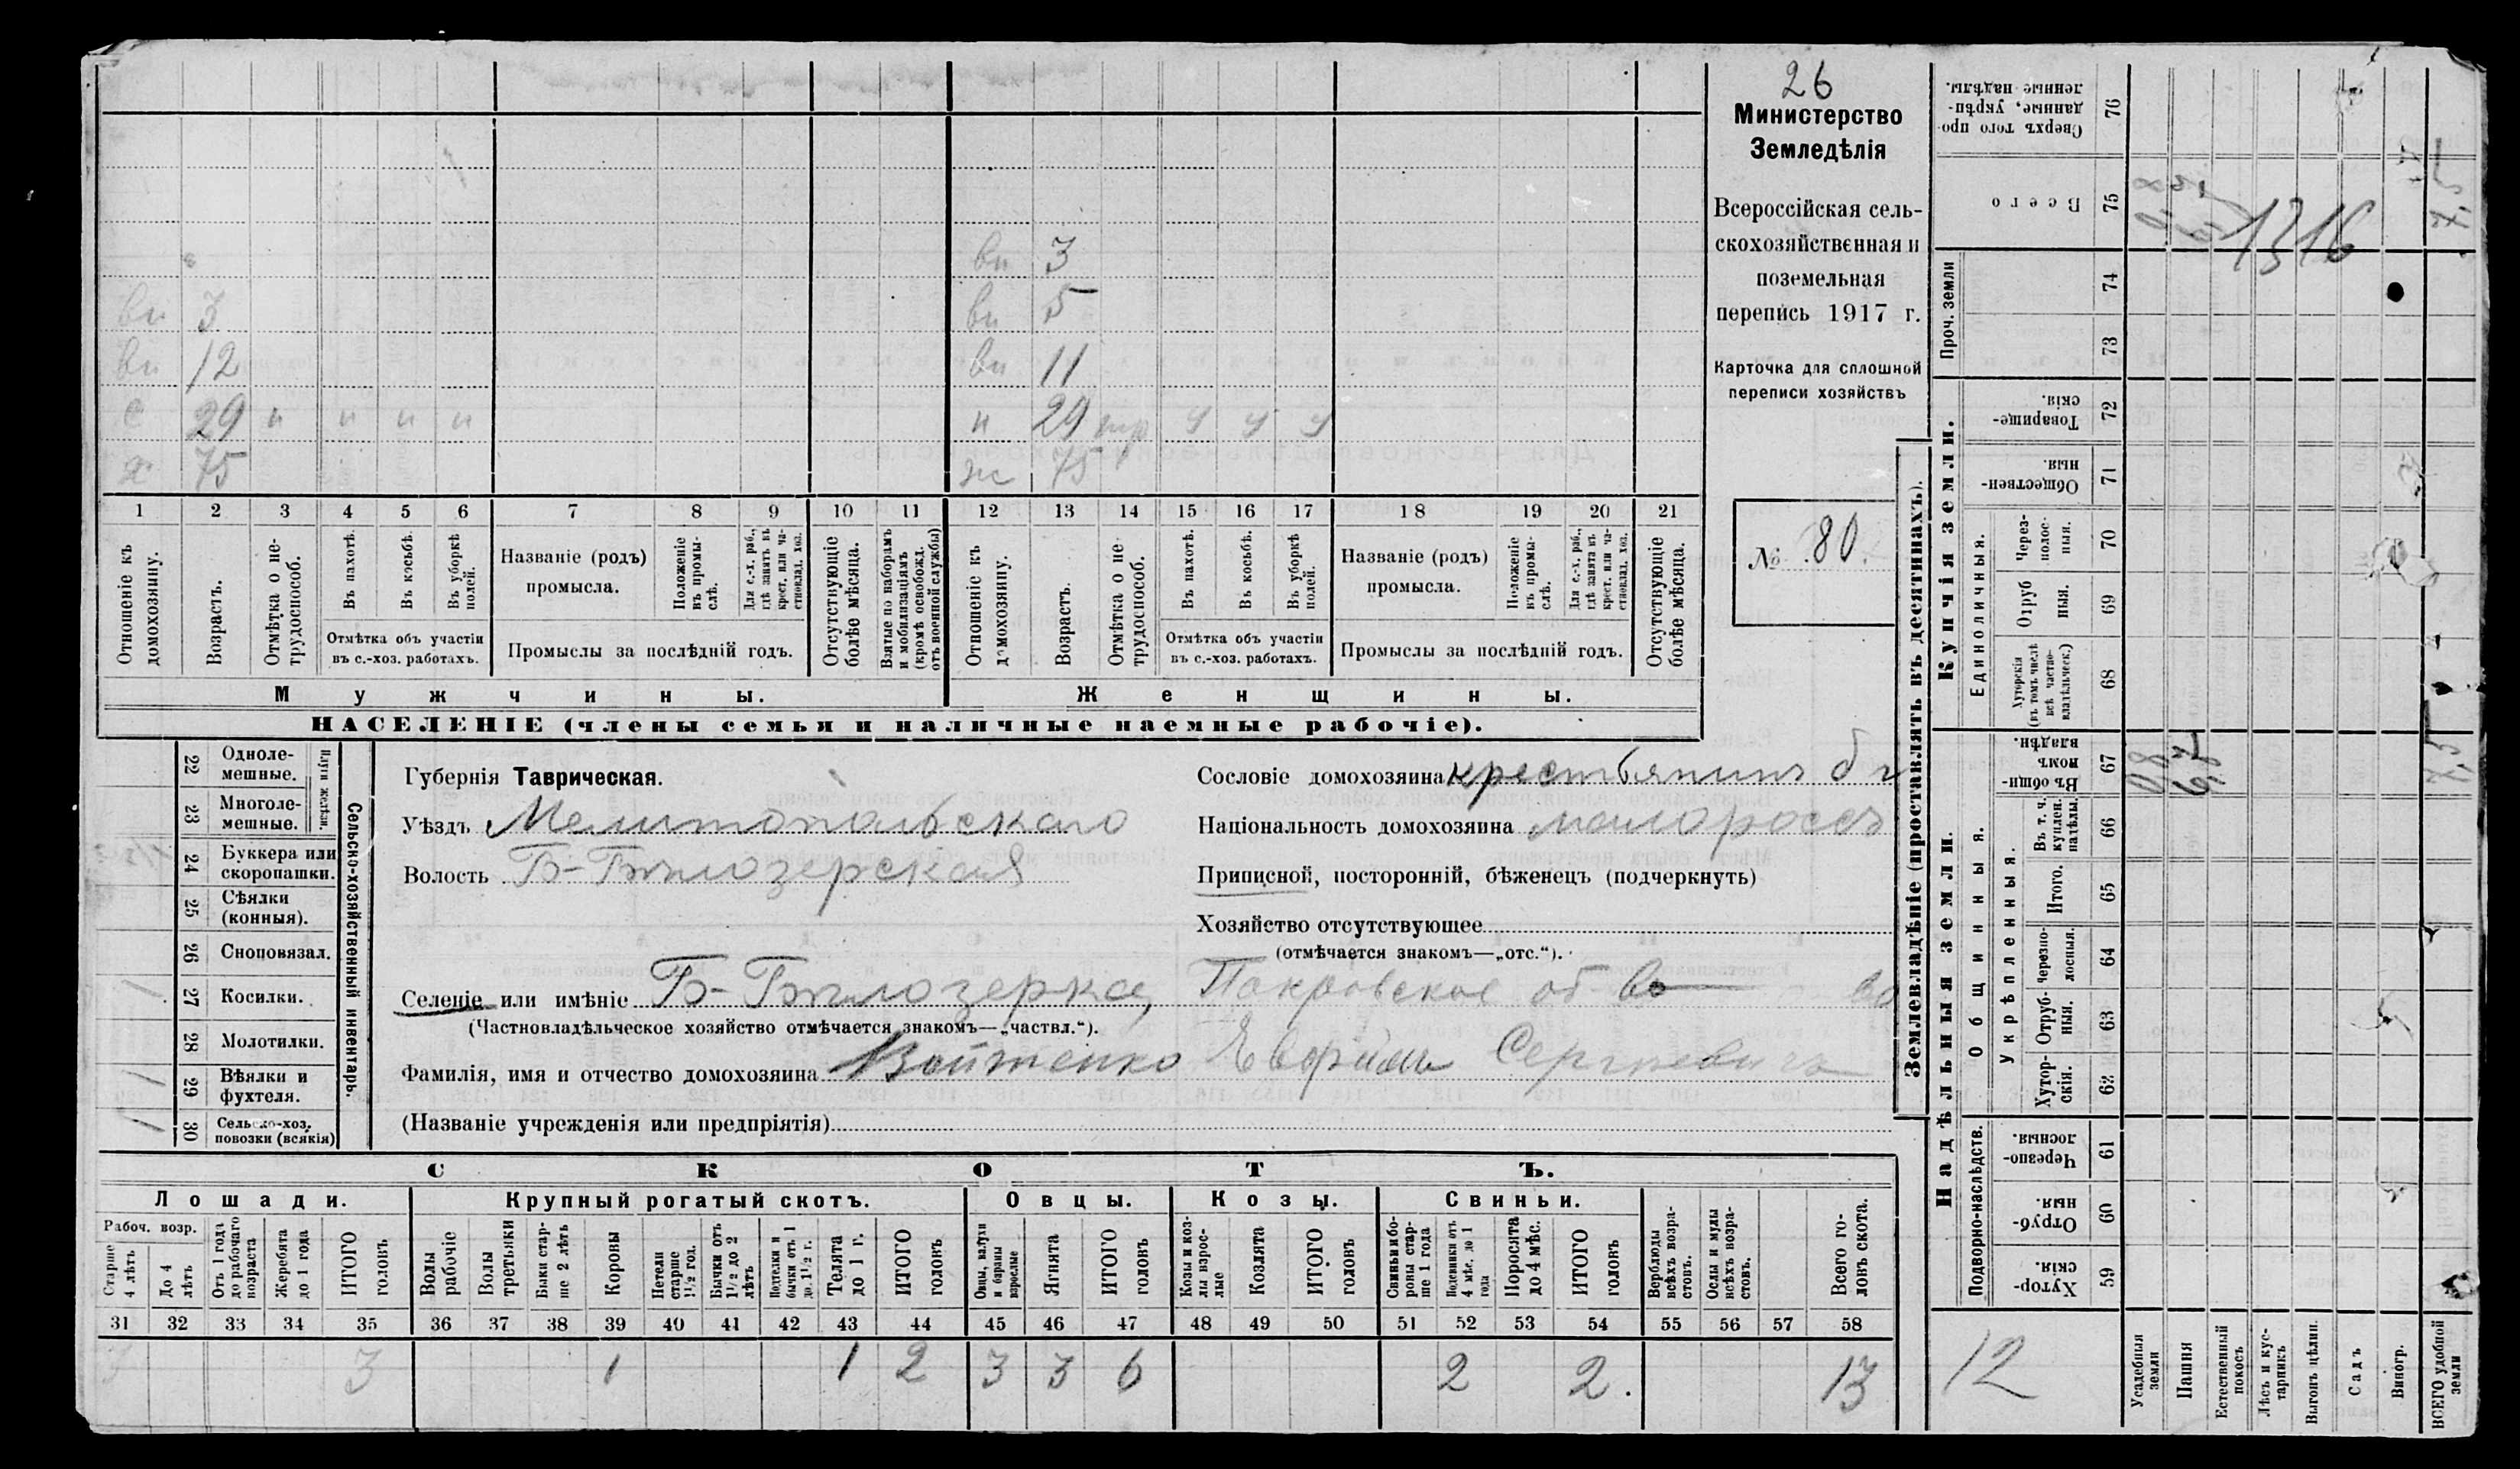 26
Министерство
Земледѣлія
Всероссійская сель-
скохозяйственная и
поземельная
перепись 1917 г.
Карточка для сплошной
переписи хозяйствъ
№ 80.
вн 3
вн 3 вн 5
вн 12 вн 11
с 29 н н н н н 29 у у у
75 ж 75
1 2 3 4 5 6 7 8 9 10 11 12 13 14 15 16 17 18 19 20 21
Отношеніе къ домохозяину.
Возрастъ.
Отмѣтка о не-трудоспособ.
Въ пахотѣ.
Въ косьбѣ.
Въ уборкѣ полей.
Отмѣтка объ участіи
въ с.-хоз. работахъ.
Названіе (родъ)
промысла.
Положеніе въ промы-слѣ.
Для с.-х. раб., гдѣ занятъ въ крест. или ча-стновлад. хоз.
Промыслы за послѣдній годъ.
Отсутствующіе болѣе мѣсяца.
Взятые по наборамъ и мобилизаціямъ (кромѣ освобожд. отъ военной службы)
Отношеніе къ домохозяину.
Возрастъ.
Отмѣтка о не-трудоспособ.
Въ пахотѣ.
Въ косьбѣ.
Въ уборкѣ полей.
Отмѣтка объ участіи
въ с.-хоз. работахъ.
Названіе (родъ)
промысла.
Положеніе въ промы-слѣ.
Для с.-х. раб., гдѣ занята въ крест. или ча-стновлад. хоз.
Промыслы за послѣдній годъ.
Отсутствующіе болѣе мѣсяца.
Мужчины. Женщины.
НАСЕЛЕНІЕ (члены семьи и наличные наемные рабочіе).
22 Одноле-мешные.
23 Многоле-мешные.
Плуги желѣзн.
24 Буккера или скоропашки.
25 Сѣялки (конныя).
26 Сноповязал.
27 Косилки. 1
28 Молотилки.
29 Вѣялки и фухтеля. 1
30 Сельско-хоз. повозки (всякія) 1
Сельско-хозяйственный инвентарь.
Губернія Таврическая.
Уѣздъ Мелитопольскаго
Волость Б-Бѣлозерская
Сословіе домохозяина крестьянинъ
Національность домохозяина малороссъ
Приписной, посторонній, бѣженецъ (подчеркнуть)
Хозяйство отсутствующее
(отмѣчается знакомъ—„отс.“).
Селеніе или имѣніе Б-Бѣлозерка, Покровское об-во
(Частновладѣльческое хозяйство отмѣчается знакомъ—„частвл.“).
Фамилія, имя и отчество домохозяина Войтенко Сергѣевичъ
(Названіе учрежденія или предпріятія)
СКОТЪ.
Лошади. Крупный рогатый скотъ. Овцы. Козы. Свиньи.
Рабоч. возр.
Старше 4 лѣтъ
До 4 лѣтъ
Отъ 1 года до рабочаго возраста
Жеребята до 1 года
ИТОГО головъ
Волы рабочіе
Волы третьяки
Быки стар-ше 2 лѣтъ
Коровы
Нетели старше 1½ год.
Бычки отъ 1½ до 2 лѣтъ
Подтелки и бычки отъ 1 до 1½ г.
Телята до 1 г.
ИТОГО головъ
Овцы, валухи и бараны взрослые
Ягнята
ИТОГО головъ
Козы и коз-лы взрос-лые
Козлята
ИТОГО головъ
Свиньи и бо-ровы стар-ше 1 года
Подсвинки отъ 4 мѣс. до 1 года
Поросята до 4 мѣс.
ИТОГО головъ
Верблюды всѣхъ возра-стовъ.
Ослы и мулы всѣхъ возра-стовъ.
Всего го-ловъ скота.
31 32 33 34 35 36 37 38 39 40 41 42 43 44 45 46 47 48 49 50 51 52 53 54 55 56 57 58
3 3 1 1 2 3 3 6 2 2. 13
Землевладѣніе (проставлять въ десятинахъ).
Сверхъ того про-данные, укрѣп-ленные надѣлы. 76
Всего 75
1316
Проч. земли 74 73
Купчія земли.
Товарище-скія. 72
Обществен-ныя. 71
Единоличныя.
Через-полос-ныя. 70
Отруб ныя. 69
Хуторскія (въ томъ числѣ всѣ частно-владѣльческ.) 68
Надѣльныя земли.
Общинныя.
Въ общи-номъ владѣн. 67
Укрѣпленныя.
Въ т. ч. куплен. надѣлы. 66
Итого. 65
Черезпо-лосныя. 64
Отруб-ныя. 63
Хутор-скія. 62
Подворно-наслѣдств.
Черезпо-лосныя. 61
Отруб-ныя. 60
Хутор-скія. 59
12
Усадебныя земли
Пашня
Естественный покосъ
Лѣсъ и кус-тарникъ
Выгонъ цѣлин.
Садъ
Виногр.
ВСЕГО удобной земли